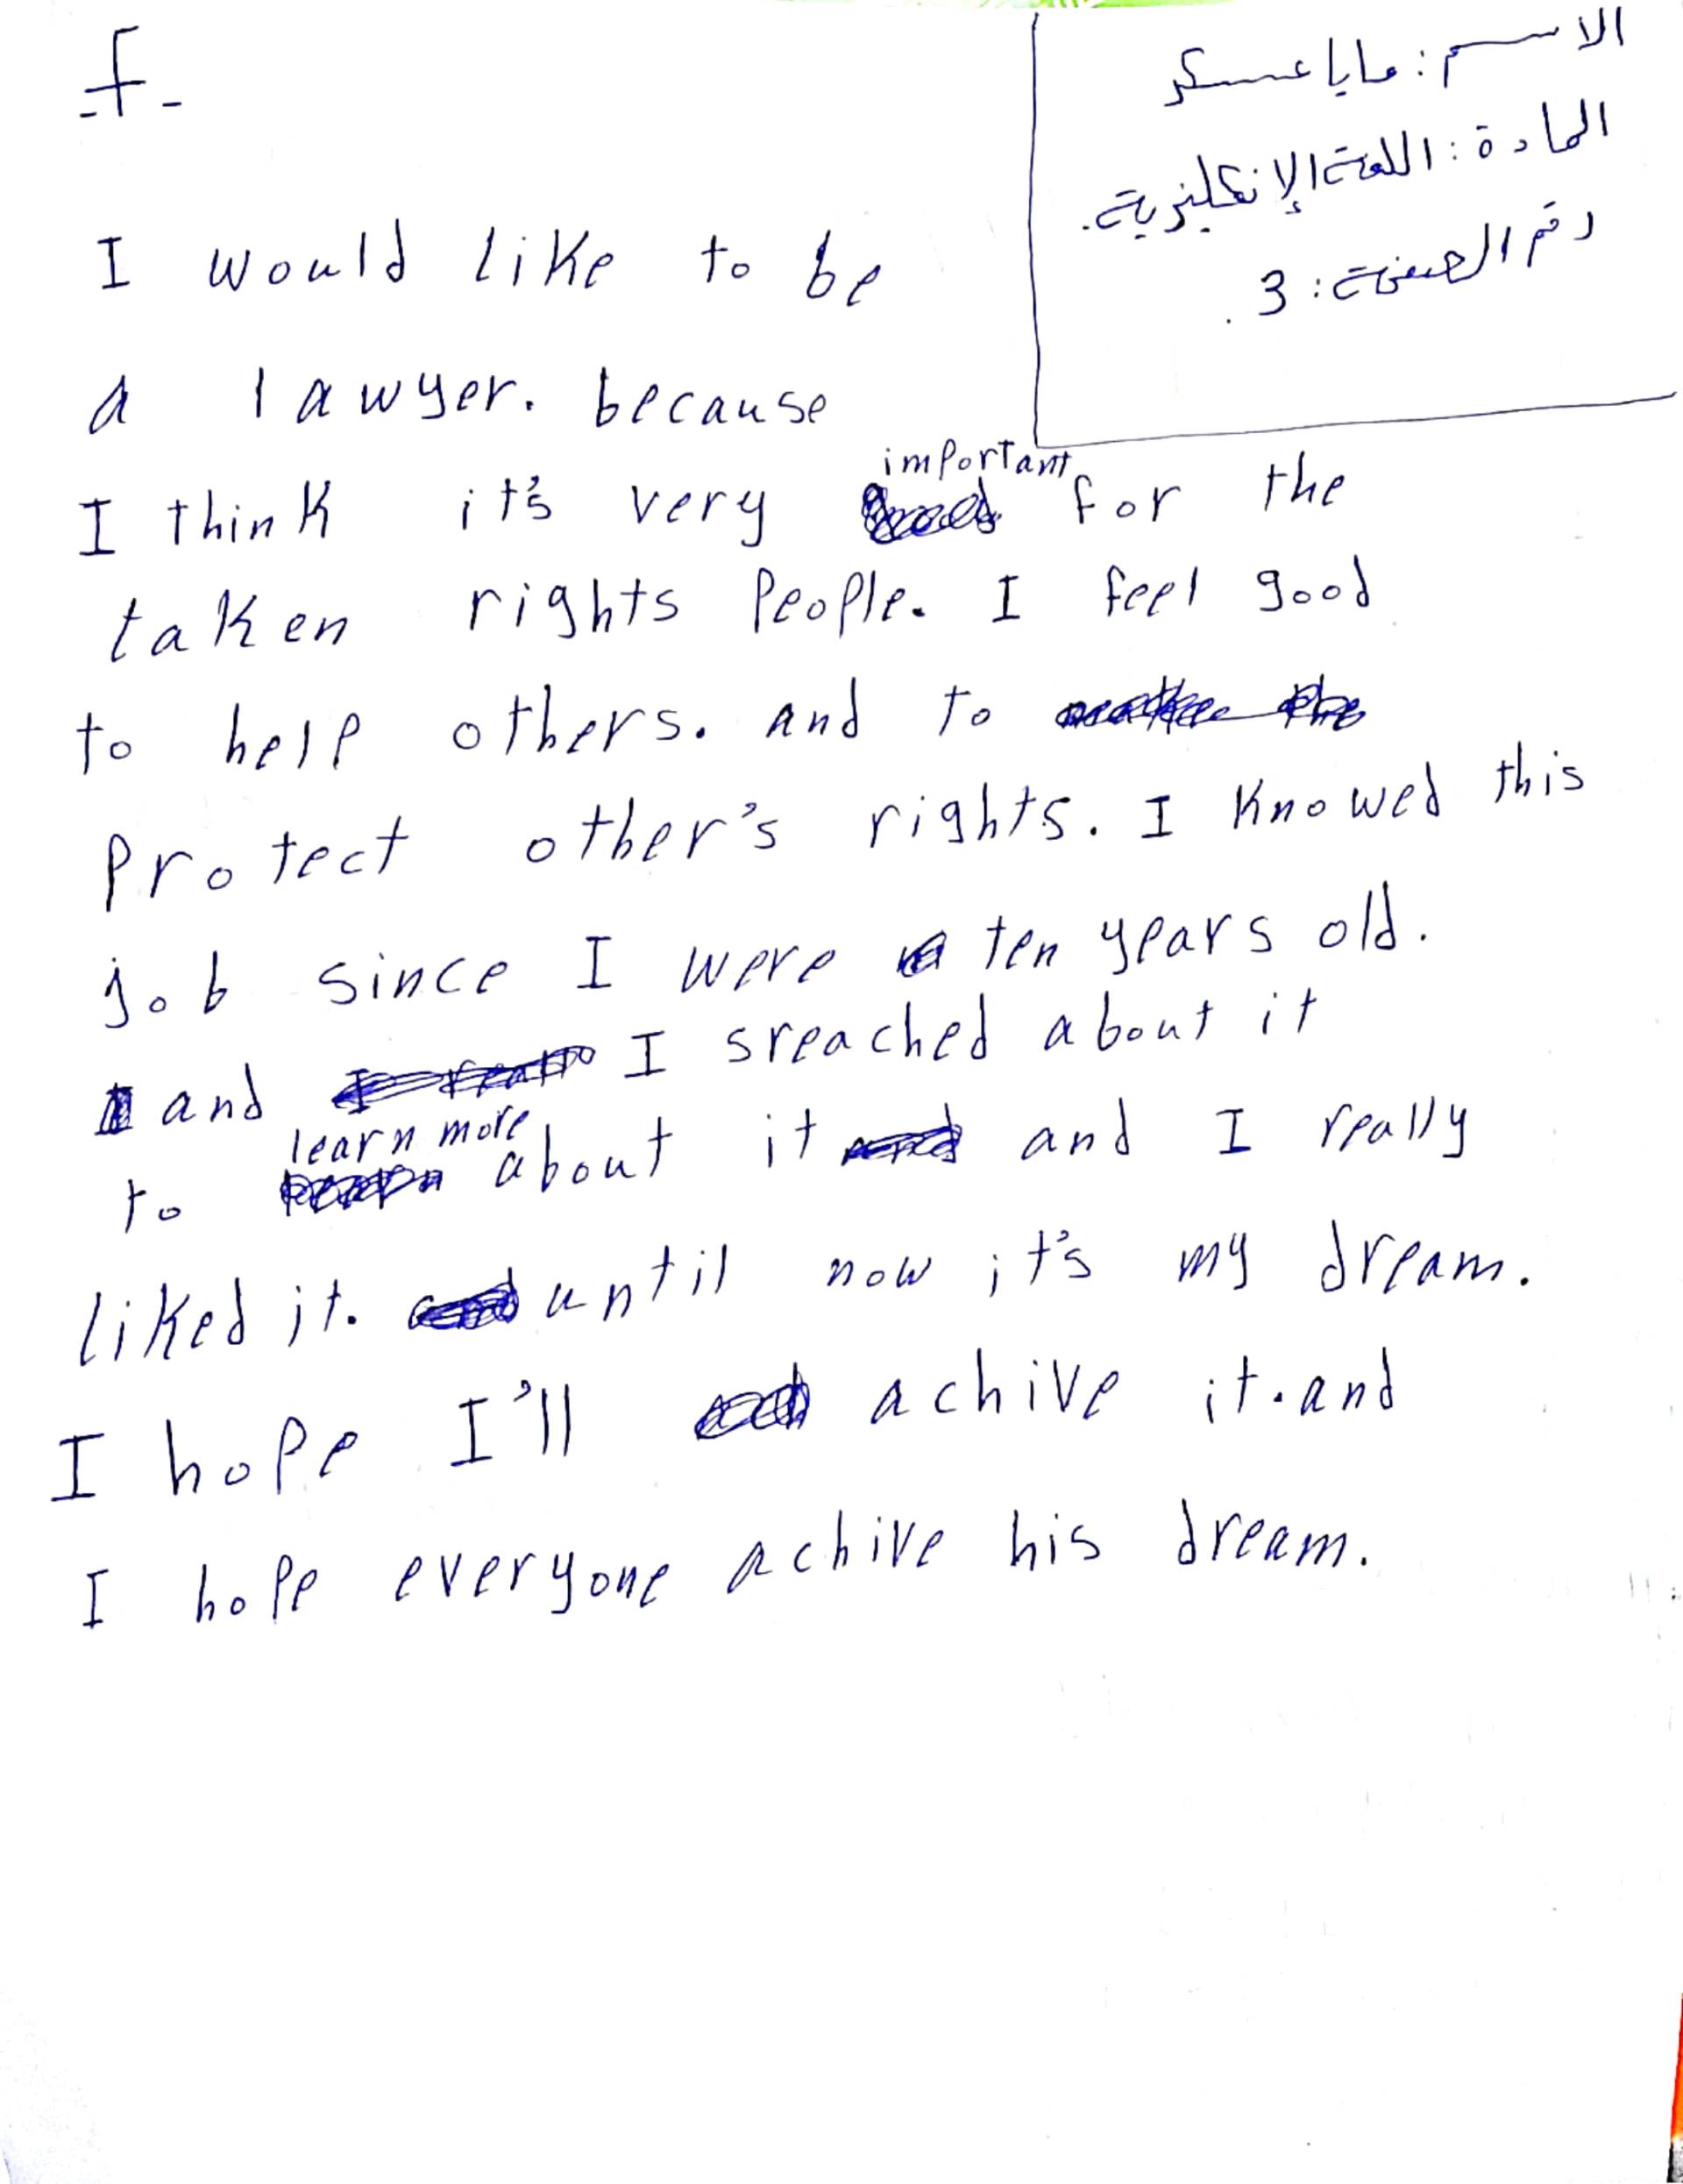 -f-
الاسم: مايا عسكر
المادة: اللغة الإنكليزية.
رقم الصفحة: 3.
I would like to be
a lawyer. because
I think it's very important for the
taken rights People. I feel good
to help others. and to
Protect other's rights. I Knowed this
job since I were ten years old.
and I sreached about it
to learn more about it and I really
liked it. until now it's my dream.
I hope I'll achive it. and
I hope everyone achive his dream.